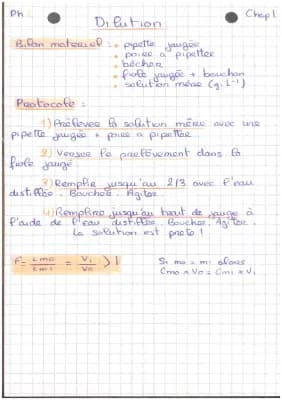 Ph
Chap 1
Dilution
Bilan materiel : • pipette jaugée
• poire a pipetter
• bécher
• fiole jaugée + bouchon
• solution mère (g.L⁻¹)
Protocole :
1) Prélever la solution mère avec une
pipette jaugée + poire a pipetter.
2) Verser le prélèvement dans la
fiole jaugé
3) Remplir jusqu'au 2/3 avec l'eau
distillée. Boucher. Agiter.
4) Remplir jusqu'au trait de jauge à
l'aide de l'eau distillée. Boucher. Agiter.
La solution est prete !
F = Cmo / Cm1 = V1 / Vo > 1
Si mo = m1 alors
Cmo x Vo = Cm1 x V1